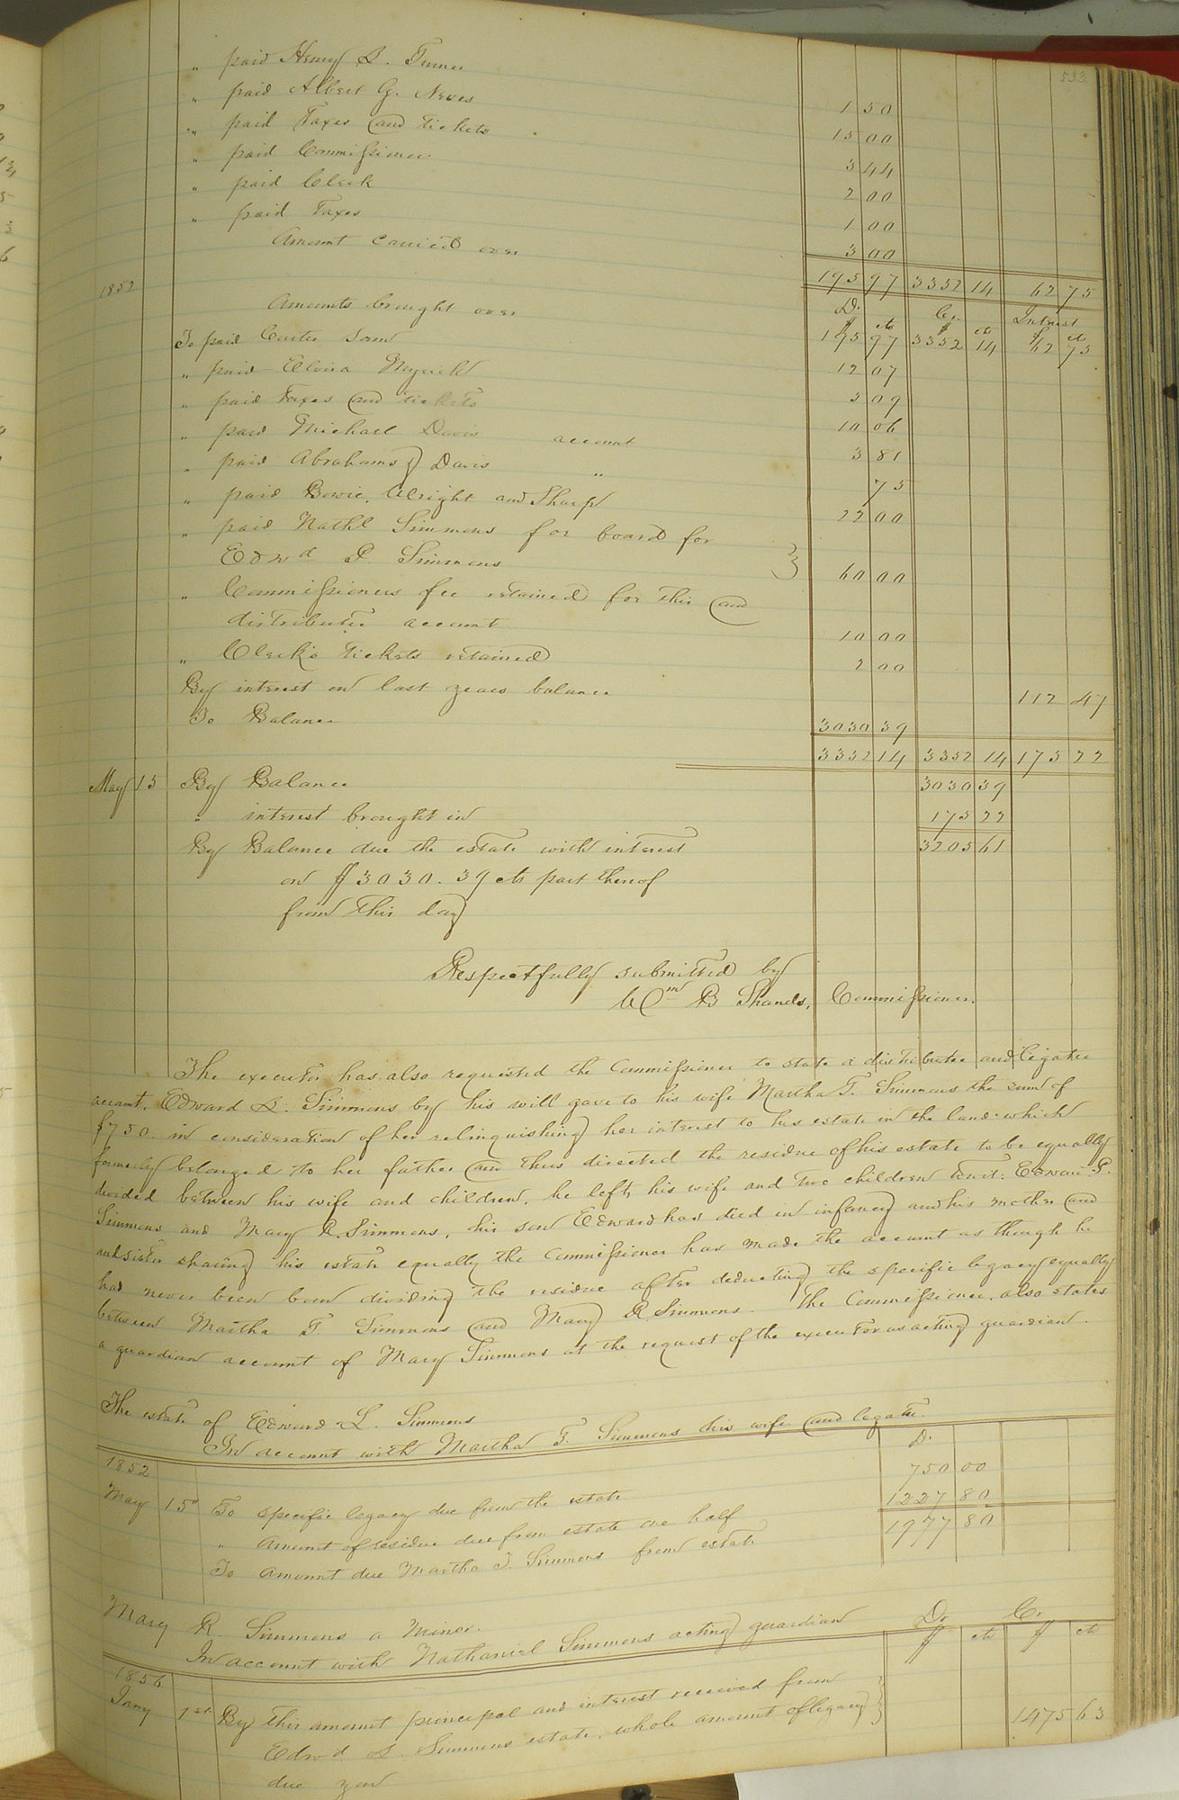 533
" paid Henry S. Turner 1 50
" paid Albert G. Neves 15 00
" paid Taxes and tickets 3 44
" paid Commissioner 2 00
" paid Clerk 1 00
" paid Taxes 3 00
Amount carried over 195 97 3352 14 62 75
1852 Dr. Cr. Interest
Amounts brought over $ cts $ cts $ cts
195 97 3352 14 62 75
To paid Carter 12 07
" paid Elvira Myrick 5 09
" paid Taxes and tickets 10 06
" paid Michael Davis account 3 81
" paid Abrahams Davis " 75
" paid Bowie, Wright and Sharp 22 00
" paid Nathl Simmons for board for
Edwd P. Simmons 60 00
" Commissioners fee retained for this and
distributee account 10 00
" Clerk's tickets retained 2 00
By interest on last years balance 112 47
To Balance 3030 39
3352 14 3352 14 175 22
May 15 By Balance 3030 39
" interest brought in 175 22
By Balance due the estate with interest 3205 61
on $3030.39 cts part thereof
from this day
Respectfully submitted by
Wm B Shands, Commissioner.
The executor has also requested the Commissioner to state a distributee and legatee
account. Edward L. Simmons by his will gave to his wife Martha T. Simmons the sum of
$750 in consideration of her relinquishing her interest to his estate in the land which
formerly belonged to her father and thus directed the residue of his estate to be equally
divided between his wife and children, he left his wife and two children towit: Edward P.
Simmons and Mary R. Simmons, his son Edward has died in infancy and his mother and
and sister sharing his estate equally the Commissioner has made the account as though he
had never been born dividing the residue after deducting the specific legacy equally
between Martha T Simmons and Mary R Simmons. The Commissioner also states
a guardian account of Mary Simmons at the request of the executor as acting guardian.
The estate of Edward L. Simmons
In account with Martha T. Simmons his wife and legatee.
1852 Dr.
May 15 To specific legacy due from the estate 750 00
" Amount of residue due from estate one half 1227 80
To amount due Martha T. Simmons from estate 1977 80
Mary R. Simmons a minor. Dr Cr.
In account with Nathaniel Simmons acting guardian $ cts $ cts
1856
Jany 1st By this amount principal and interest received from
Edwd L. Simmons estate, whole amount of legacy 1475 63
due